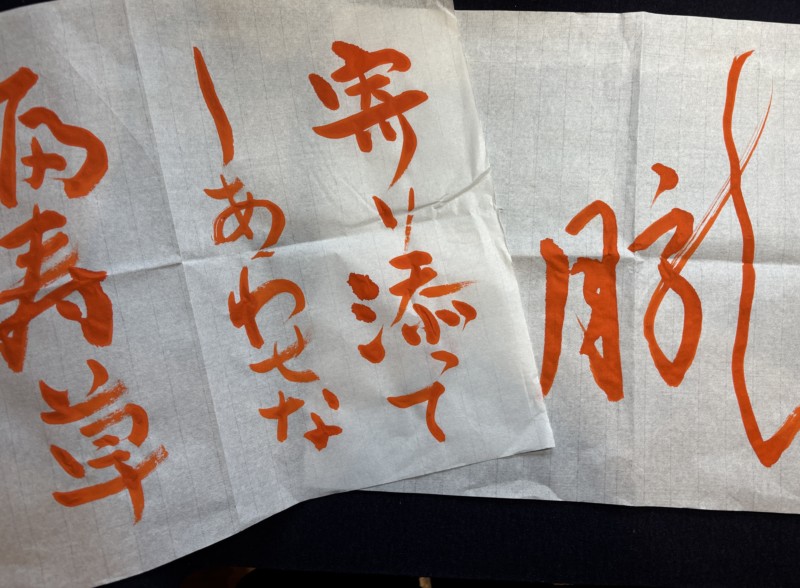 朧
寄り添って
しあわせな
福寿草